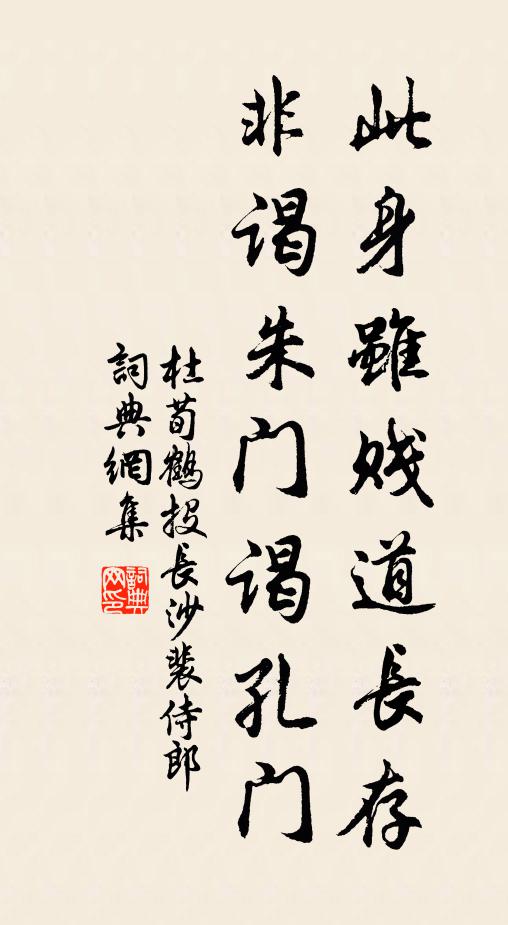 此身雖賤道長存
非谒朱门谒孔门
杜荀鶴投長沙裴侍郎
詞典網集
詞典网印